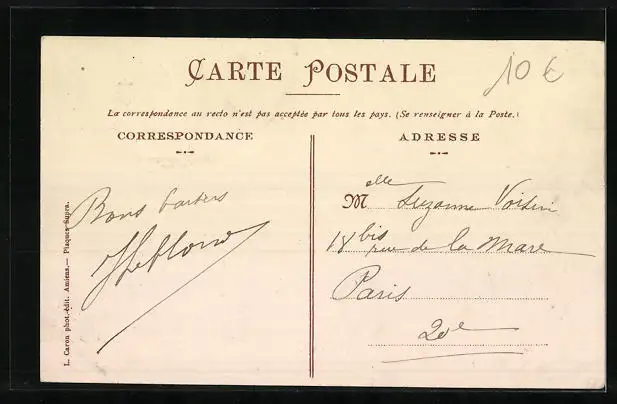 CARTE POSTALE
10 €
La correspondance au recto n'est pas acceptée par tous les pays. (Se renseigner à la Poste.)
CORRESPONDANCE
ADRESSE
Bons baisers
L. Caron phot.-édit. Amiens.— Plaques Supra.
Melle Suzanne Voisin
18 bis rue de la Mare
Paris
20e